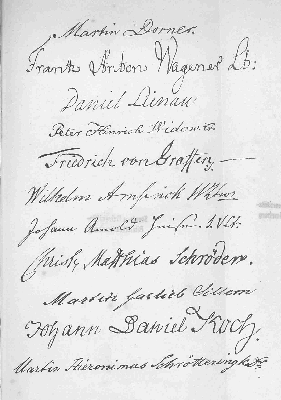 Martin Dorner.
Frank Anton Wagener Lt:
Daniel Lienau
Peter Hinrich Widow
Friedrich von Graffen
Wilhelm Amsinck
Johann Arnold
Christ. Matthias Schröder.
Martin Garlieb Sillem
Johann Daniel Koch.
Martin Hieronimus Schrötteringk